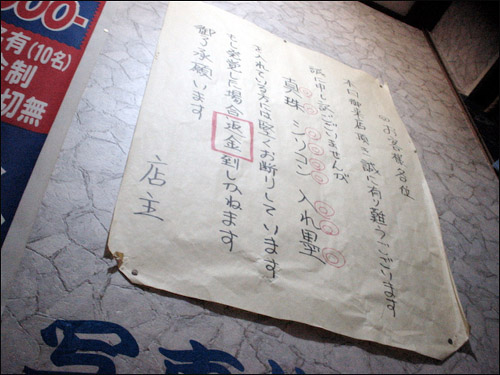 ◎お客様各位
本日御来店頂き誠に有り難うございます
誠に申し訳ございませんが
真珠 シリコン 入れ墨
を入れている方には堅くお断りしています
もし発覚した場合返金致しかねます
御了承願います
店主
00-
有(10名)
制
切無